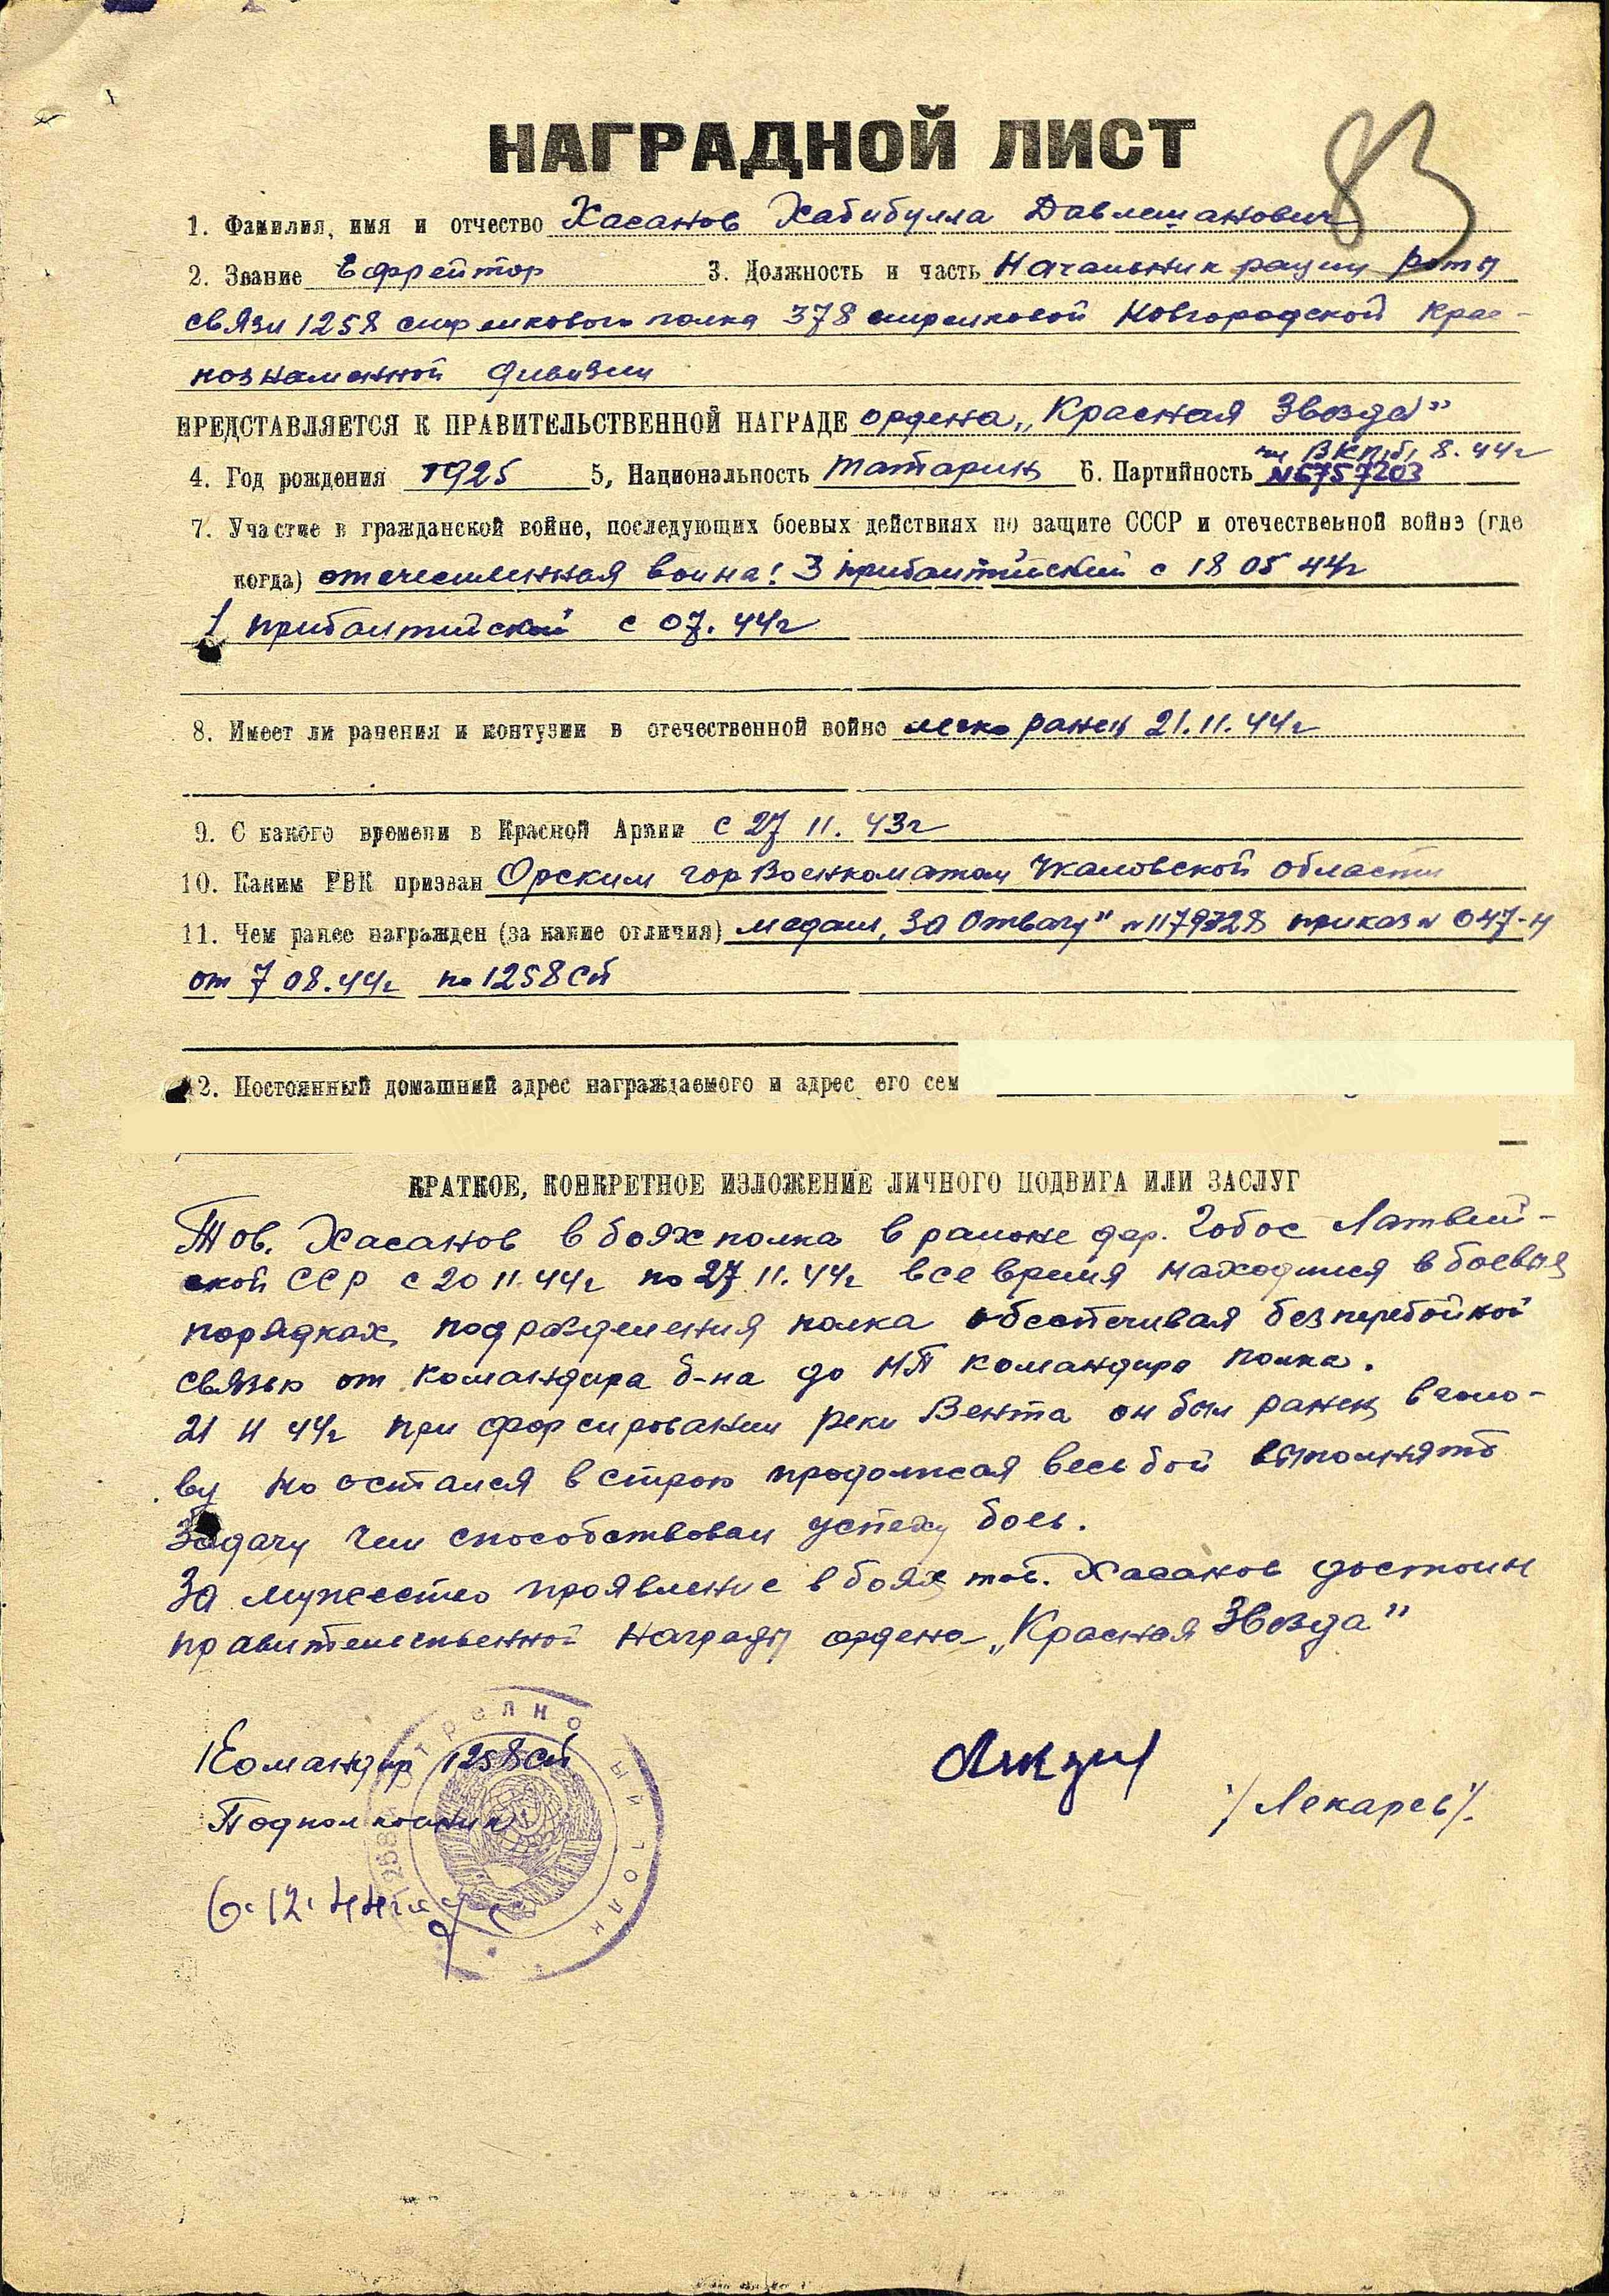 83
НАГРАДНОЙ ЛИСТ
1. Фамилия, имя и отчество Хасанов Хабибулла Давлетшанович
2. Звание Ефрейтор 3. Должность и часть Начальник рации роты
связи 1258 стрелкового полка 378 стрелковой Новгородской Крас-
нознаменной дивизии
ПРЕДСТАВЛЯЕТСЯ К ПРАВИТЕЛЬСТВЕННОЙ НАГРАДЕ ордена „Красная Звезда"
4. Год рождения 1925 5, Национальность татарин 6. Партийность чл ВКП,б, 8.44г
№6757203
7. Участие в гражданской войне, последующих боевых действиях по защите СССР и отечественной войне (где
когда) отечественная война: 3 прибалтийский с 18 05 44г
1 прибалтийский с 07.44г
8. Имеет ли ранения и контузии в отечественной войне легко ранен 21.11.44г
9. С какого времени в Красной Армии с 27 11. 43г
10. Каким РВК призван Орским горвоенкоматом Чкаловской области
11. Чем ранее награжден (за какие отличия) медаль „За Отвагу" №1179728 приказ № 047-н
от 7 08.44г по 1258 сп
12. Постоянный домашний адрес награждаемого и адрес его сем
КРАТКОЕ, КОНКРЕТНОЕ ИЗЛОЖЕНИЕ ЛИЧНОГО ПОДВИГА ИЛИ ЗАСЛУГ
Тов. Хасанов в боях полка в районе дер. Гобос Латвий-
ской ССР с 20 11.44г по 27 11.44г все время находился в боевых
порядках подразделения полка обеспечивая безперебойной
связью от командира б-на до НП командира полка.
21 11 44г при форсировании реки Вента он был ранен в голо-
ву но остался в строю продолжая весь бой выполнять
задачу чем способствовал успеху боя.
За мужество проявление в боях тов. Хасанов достоин
правительственной награды ордена „Красная Звезда"
Командир 1258 сп
Подполковник /Лекарев/.
6.12.44г
1258 СТРЕЛКОВЫЙ ПОЛК